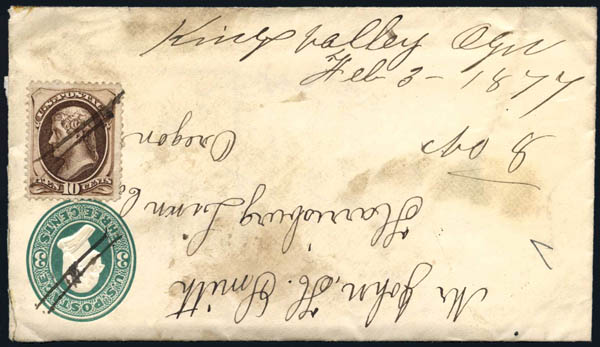 Kings valley Ogn
Feb 3 - 1877
U.S. POSTAGE
TEN 10 CENTS
U.S. POSTAGE
3 3
THREE CENTS
Mr John, H. Smith
Harrisburg Linn Co
Oregon